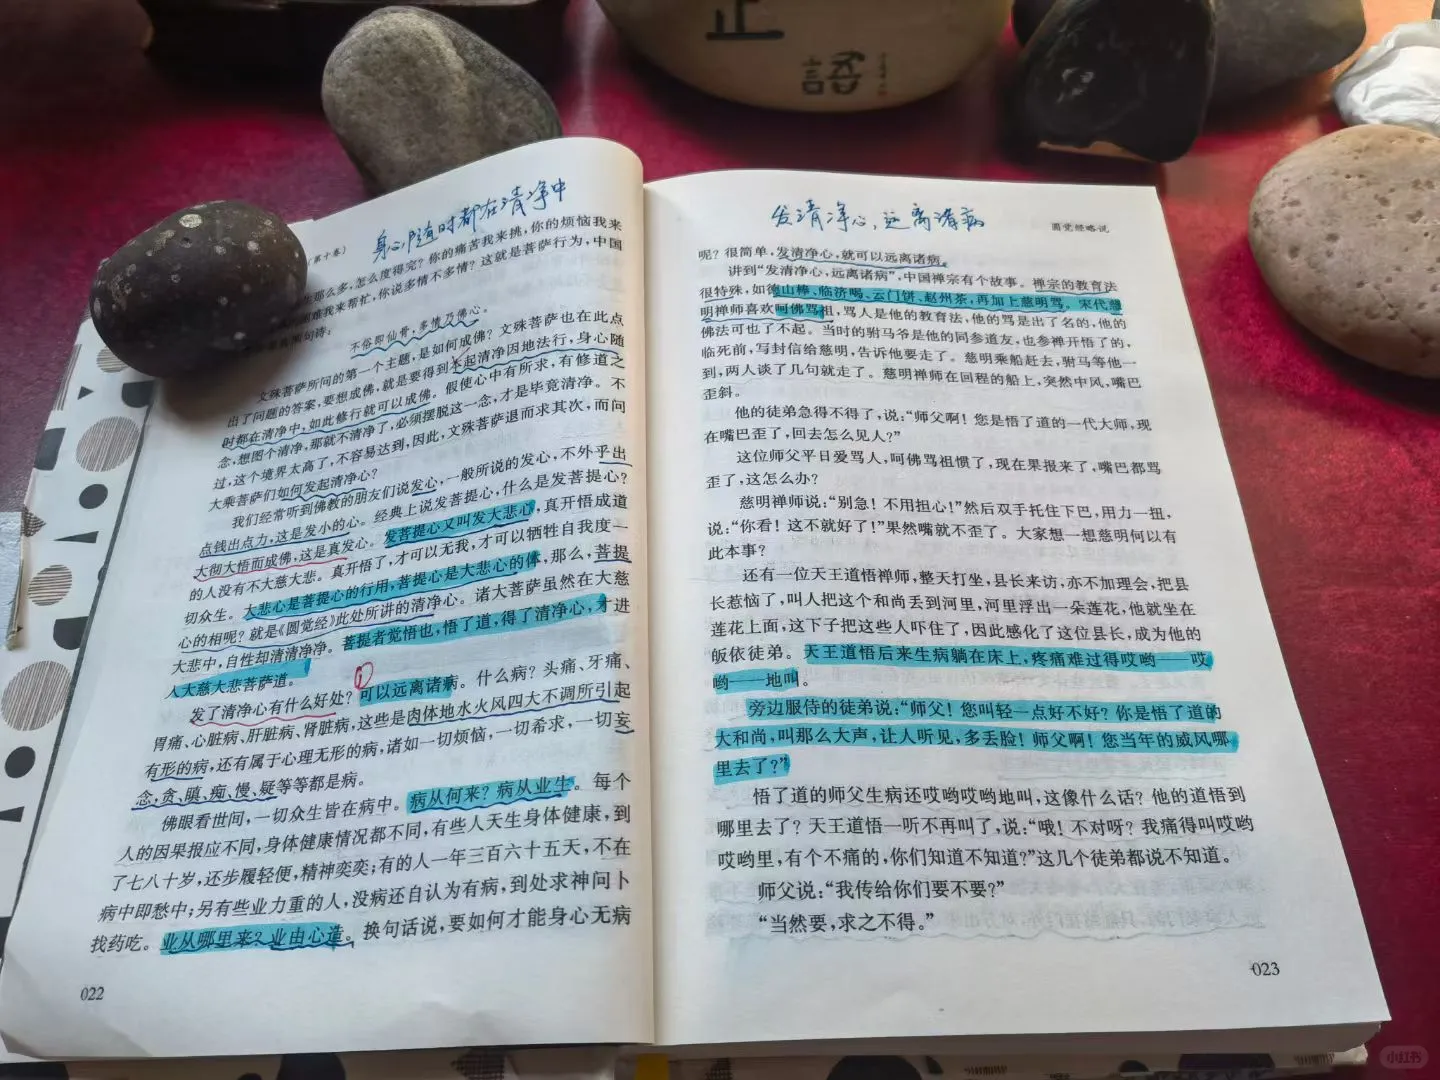 正
語
身心随时都在清净中
(第十卷)
生那么多,怎么度得完?你的痛苦我来挑,你的烦恼我来
困难我来帮忙,你说多情不多情?这就是菩萨行为,中国
两句诗:
不俗即仙骨,多情乃佛心。
文殊菩萨所问的第一个主题,是如何成佛?文殊菩萨也在此点
出了问题的答案,要想成佛,就是要得到本起清净因地法行,身心随
时都在清净中,如此修行就可以成佛。假使心中有所求,有修道之
念,想图个清净,那就不清净了,必须摆脱这一念,才是毕竟清净。不
过,这个境界太高了,不容易达到,因此,文殊菩萨退而求其次,而问
大乘菩萨们如何发起清净心?
我们经常听到佛教的朋友们说发心,一般所说的发心,不外乎出
点钱出点力,这是发小的心。经典上说发菩提心,什么是发菩提心?
大彻大悟而成佛,这是真发心。发菩提心又叫发大悲心,真开悟成道
的人没有不大慈大悲。真开悟了,才可以无我,才可以牺牲自我度一
切众生。大悲心是菩提心的行用,菩提心是大悲心的体,那么,菩提
心的相呢?就是《圆觉经》此处所讲的清净心。诸大菩萨虽然在大慈
大悲中,自性却清清净净。菩提者觉悟也,悟了道,得了清净心,才进
入大慈大悲菩萨道。
发了清净心有什么好处?可以远离诸病。什么病?头痛、牙痛、
胃痛、心脏病、肝脏病、肾脏病,这些是肉体地水火风四大不调所引起
有形的病,还有属于心理无形的病,诸如一切烦恼,一切希求,一切妄
念,贪、瞋、痴、慢、疑等等都是病。
佛眼看世间,一切众生皆在病中。病从何来?病从业生。每个
人的因果报应不同,身体健康情况都不同,有些人天生身体健康,到
了七八十岁,还步履轻便,精神奕奕;有的人一年三百六十五天,不在
病中即愁中;另有些业力重的人,没病还自认为有病,到处求神问卜
找药吃。业从哪里来?业由心造。换句话说,要如何才能身心无病
022
发清净心,远离诸病
圆觉经略说
呢?很简单,发清净心,就可以远离诸病。
讲到“发清净心,远离诸病”,中国禅宗有个故事。禅宗的教育法
很特殊,如德山棒、临济喝、云门饼、赵州茶,再加上慈明骂。宋代慈
明禅师喜欢呵佛骂祖,骂人是他的教育法,他的骂是出了名的,他的
佛法可也了不起。当时的驸马爷是他的同参道友,也参禅开悟了的,
临死前,写封信给慈明,告诉他要走了。慈明乘船赶去,驸马等他一
到,两人谈了几句就走了。慈明禅师在回程的船上,突然中风,嘴巴
歪斜。
他的徒弟急得不得了,说:“师父啊!您是悟了道的一代大师,现
在嘴巴歪了,回去怎么见人?”
这位师父平日爱骂人,呵佛骂祖惯了,现在果报来了,嘴巴都骂
歪了,这怎么办?
慈明禅师说:“别急!不用担心!”然后双手托住下巴,用力一扭,
说:“你看!这不就好了!”果然嘴就不歪了。大家想一想慈明何以有
此本事?
还有一位天王道悟禅师,整天打坐,县长来访,亦不加理会,把县
长惹恼了,叫人把这个和尚丢到河里,河里浮出一朵莲花,他就坐在
莲花上面,这下子把这些人吓住了,因此感化了这位县长,成为他的
皈依徒弟。天王道悟后来生病躺在床上,疼痛难过得哎哟——哎
哟——地叫。
旁边服侍的徒弟说:“师父!您叫轻一点好不好?你是悟了道的
大和尚,叫那么大声,让人听见,多丢脸!师父啊!您当年的威风哪
里去了?”
悟了道的师父生病还哎哟哎哟地叫,这像什么话?他的道悟到
哪里去了?天王道悟一听不再叫了,说:“哦!不对呀?我痛得叫哎哟
哎哟里,有个不痛的,你们知道不知道?”这几个徒弟都说不知道。
师父说:“我传给你们要不要?”
“当然要,求之不得。”
023
小红书